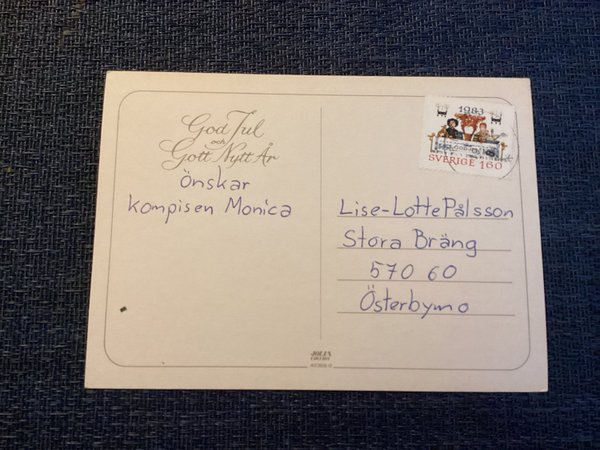 God Jul
och
Gott Nytt År
Önskar
kompisen Monica
1983
SVERIGE 160
Lise-Lotte Pålsson
Stora Bräng
570 60
Österbymo